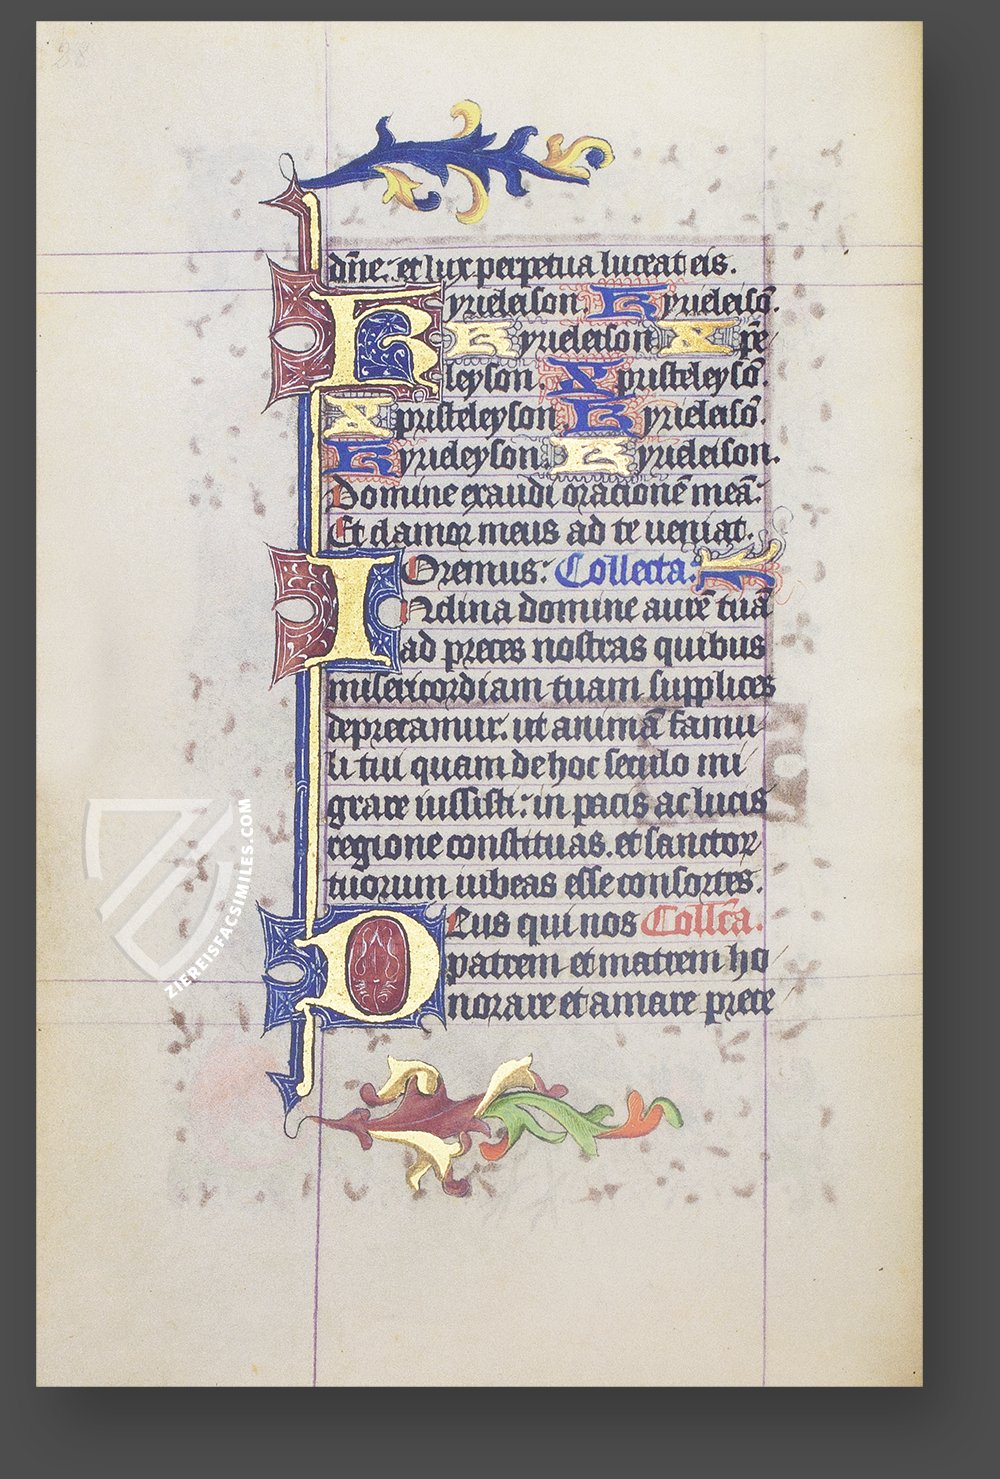 28
dn̄e. et lux perpetua luceat eis.
Kyrieleison. Kyrieleisō.
Kyrieleison Xpē
leyson. Xpristeleysō.
Xpristeleyson. Kyrieleisō.
Kyrieleyson. Kyrieleison.
Domine exaudi oracionē meā.
Et clamor meus ad te ueniat.
Oremus: Collecta.
Inclina domine aurē tuā
ad preces nostras quibus
misericordiam tuam supplices
deprecamur. ut animā famu
li tui quam de hoc seculo mi
grare iussisti: in pacis ac lucis
regione constituas. et sanctoꝝ
tuorum iubeas esse consortes.
Deus qui nos Coll̄ca.
patrem et matrem ho
norare et amare prece
ZIEREISFACSIMILES.COM